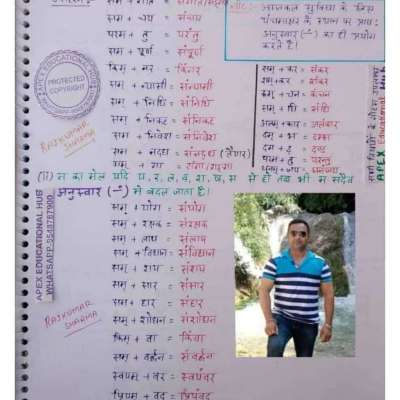 सम् + चय = संचय
परम् + तु = परंतु
सम् + पूर्ण = संपूर्ण
किम् + नर = किंनर
नोट :- आजकल सुविधा के लिए
पंचमाक्षर के स्थान पर प्रायः
अनुस्वार (ं) का ही प्रयोग
करते हैं।
APEX EDUCATIONAL HUB
PROTECTED
COPYRIGHT
RAJKUMAR
SHARMA
सम् + न्यासी = संन्यासी
सम् + निधि = संनिधि
सम् + निकट = संनिकट
सम् + निवेश = संनिवेश
सम् + नद्ध = संनद्ध (तैयार)
सम् + कर = संकर
सम् + कल्प = संकल्प
सम् + धि = संधि
दम् + भ = दम्भ
दम् + ड = दण्ड
परम् + तु = परन्तु
सभी विषयों के नोट्स उपलब्ध
APEX Educational Hub
(ii) म का मेल यदि य, र, ल, व, श, ष, स से हो तब भी म सदैव
अनुस्वार (ं) में बदल जाता है।
सम् + योग = संयोग
सम् + रक्षक = संरक्षक
सम् + लाप = संलाप
सम् + विधान = संविधान
सम् + शय = संशय
सम् + सार = संसार
सम् + हार = संहार
सम् + शोधन = संशोधन
किम् + वा = किंवा
सम् + वर्द्धन = संवर्द्धन
स्वयम् + वर = स्वयंवर
प्रियम् + वद = प्रियंवद
APEX EDUCATIONAL HUB
WHATSAPP-9548787900
RAJKUMAR
SHARMA